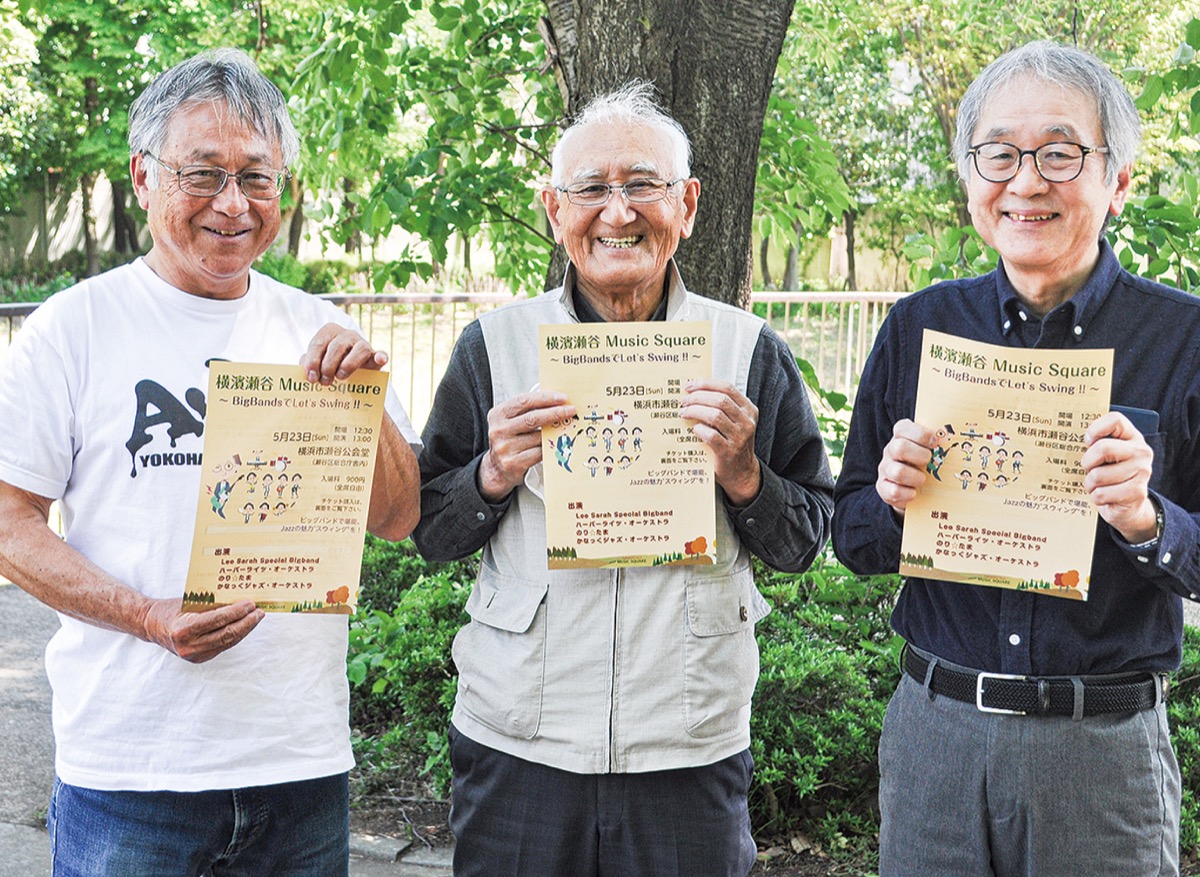 A
YOKOHA
横濱瀬谷 Music Square
～ BigBandsでLet's Swing !! ～
5月23日(Sun) 開場 12:30
開演 13:00
横浜市瀬谷公会堂
(瀬谷区総合庁舎内)
入場料 900円
(全席自由)
チケット購入は、
裏面をご覧下さい。
ビッグバンドで堪能、
Jazzの魅力"スウィング"を!
出演
Leo Sarah Special Bigband
ハーバーライツ・オーケストラ
のり☆たま
かなっくジャズ・オーケストラ
MUSIC SQUARE
横濱瀬谷 Music Square
～ BigBandsでLet's Swing !! ～
5月23日(Sun) 開場
開演
横浜市瀬谷
(瀬谷区総
入場料
(全席
チケット購入は、
裏面をご覧下さい。
ビッグバンドで堪能、
Jazzの魅力"スウィング"を!
出演
Leo Sarah Special Bigband
ハーバーライツ・オーケストラ
のり☆たま
かなっくジャズ・オーケストラ
MUSIC SQUARE
横濱瀬谷 Music Square
～ BigBandsでLet's Swing !! ～
5月23日(Sun) 開場 12:30
開演 13:00
横浜市瀬谷公会
(瀬谷区総合庁
入場料 90
(全席
チケット購
裏面をご
ビッグバンドで堪能、
Jazzの魅力"スウィング"を!
出演
Leo Sarah Special Bigband
ハーバーライツ・オーケストラ
のり☆たま
かなっくジャズ・オーケストラ
MUSIC SQUARE